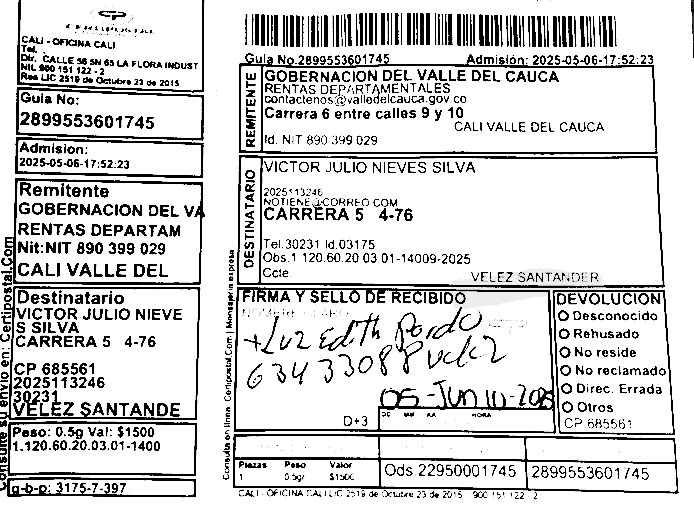 CALI - OFICINA CALI
Tel.
Dir. CALLE 56 5N 65 LA FLORA INDUST
NIL 900 151 122 - 2
Res LIC 2519 de Octubre 23 de 2015
Guia No:
2899553601745
Admision:
2025-05-06-17:52:23
Remitente
GOBERNACION DEL VA
RENTAS DEPARTAM
Nit:NIT 890 399 029
CALI VALLE DEL
Destinatario
VICTOR JULIO NIEVE
S SILVA
CARRERA 5 4-76
CP 685561
2025113246
30231
VELEZ SANTANDE
Peso: 0.5g Val: $1500
1.120.60.20.03.01-1400
g-b-p: 3175-7-397
Consulte su envio en: Certipostal.Com
Guia No.2899553601745 Admisión: 2025-05-06-17:52:23
REMITENTE
GOBERNACION DEL VALLE DEL CAUCA
RENTAS DEPARTAMENTALES
contactenos@valledelcauca.gov.co
Carrera 6 entre calles 9 y 10
CALI VALLE DEL CAUCA
Id. NIT 890 399 029
DESTINATARIO
VICTOR JULIO NIEVES SILVA
2025113246
NOTIENE@CORREO COM
CARRERA 5 4-76
Tel.30231 Id.03175
Obs.1 120.60.20.03.01-14009-2025
Ccte
VELEZ SANTANDER
FIRMA Y SELLO DE RECIBIDO
Luz Edith Pardo
63433088
05-JUN 10-2025
D+3
HORA
DEVOLUCION
Desconocido
Rehusado
No reside
No reclamado
Direc. Errada
Otros
CP 685561
Consulta en linea: Certipostal.Com | Mensajeria expresa
Piezas Peso Valor
1 0.5gr $1500
Ods.22950001745
2899553601745
CALI - OFICINA CALI LIC 2519 de Octubre 23 de 2015 900 151 122 - 2